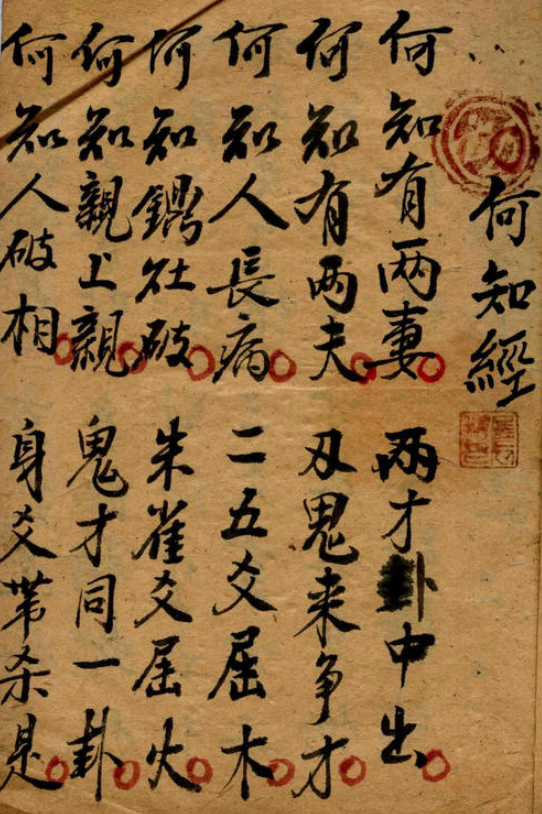 何知經
何知有两妻 两才卦中出
何知有两夫 刄鬼来争才
何知人長病 二五爻屈木
何知灶破 朱雀爻屈火
何知親上親 鬼才同一卦
何知人破相 身爻帯杀是